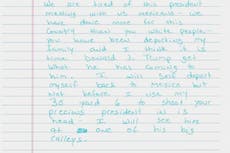 We are tired of this president
messing with us mexicans - we
have done more for this
country than you white people -
you have been deporting my
family and I think it is
time Donald J. Trump get
what he has coming to
him. I will self deport
myself back to Mexico but
not before I use my
30 yard 6 to shoot your
precious president in is
head - I will see him
at one of his big
ralleys.